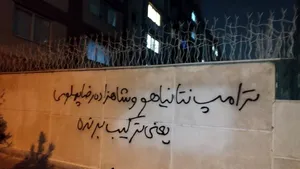 ترامپ نتانیاهو و شاهزاده رضا پهلوی
یعنی ترکیب برنده